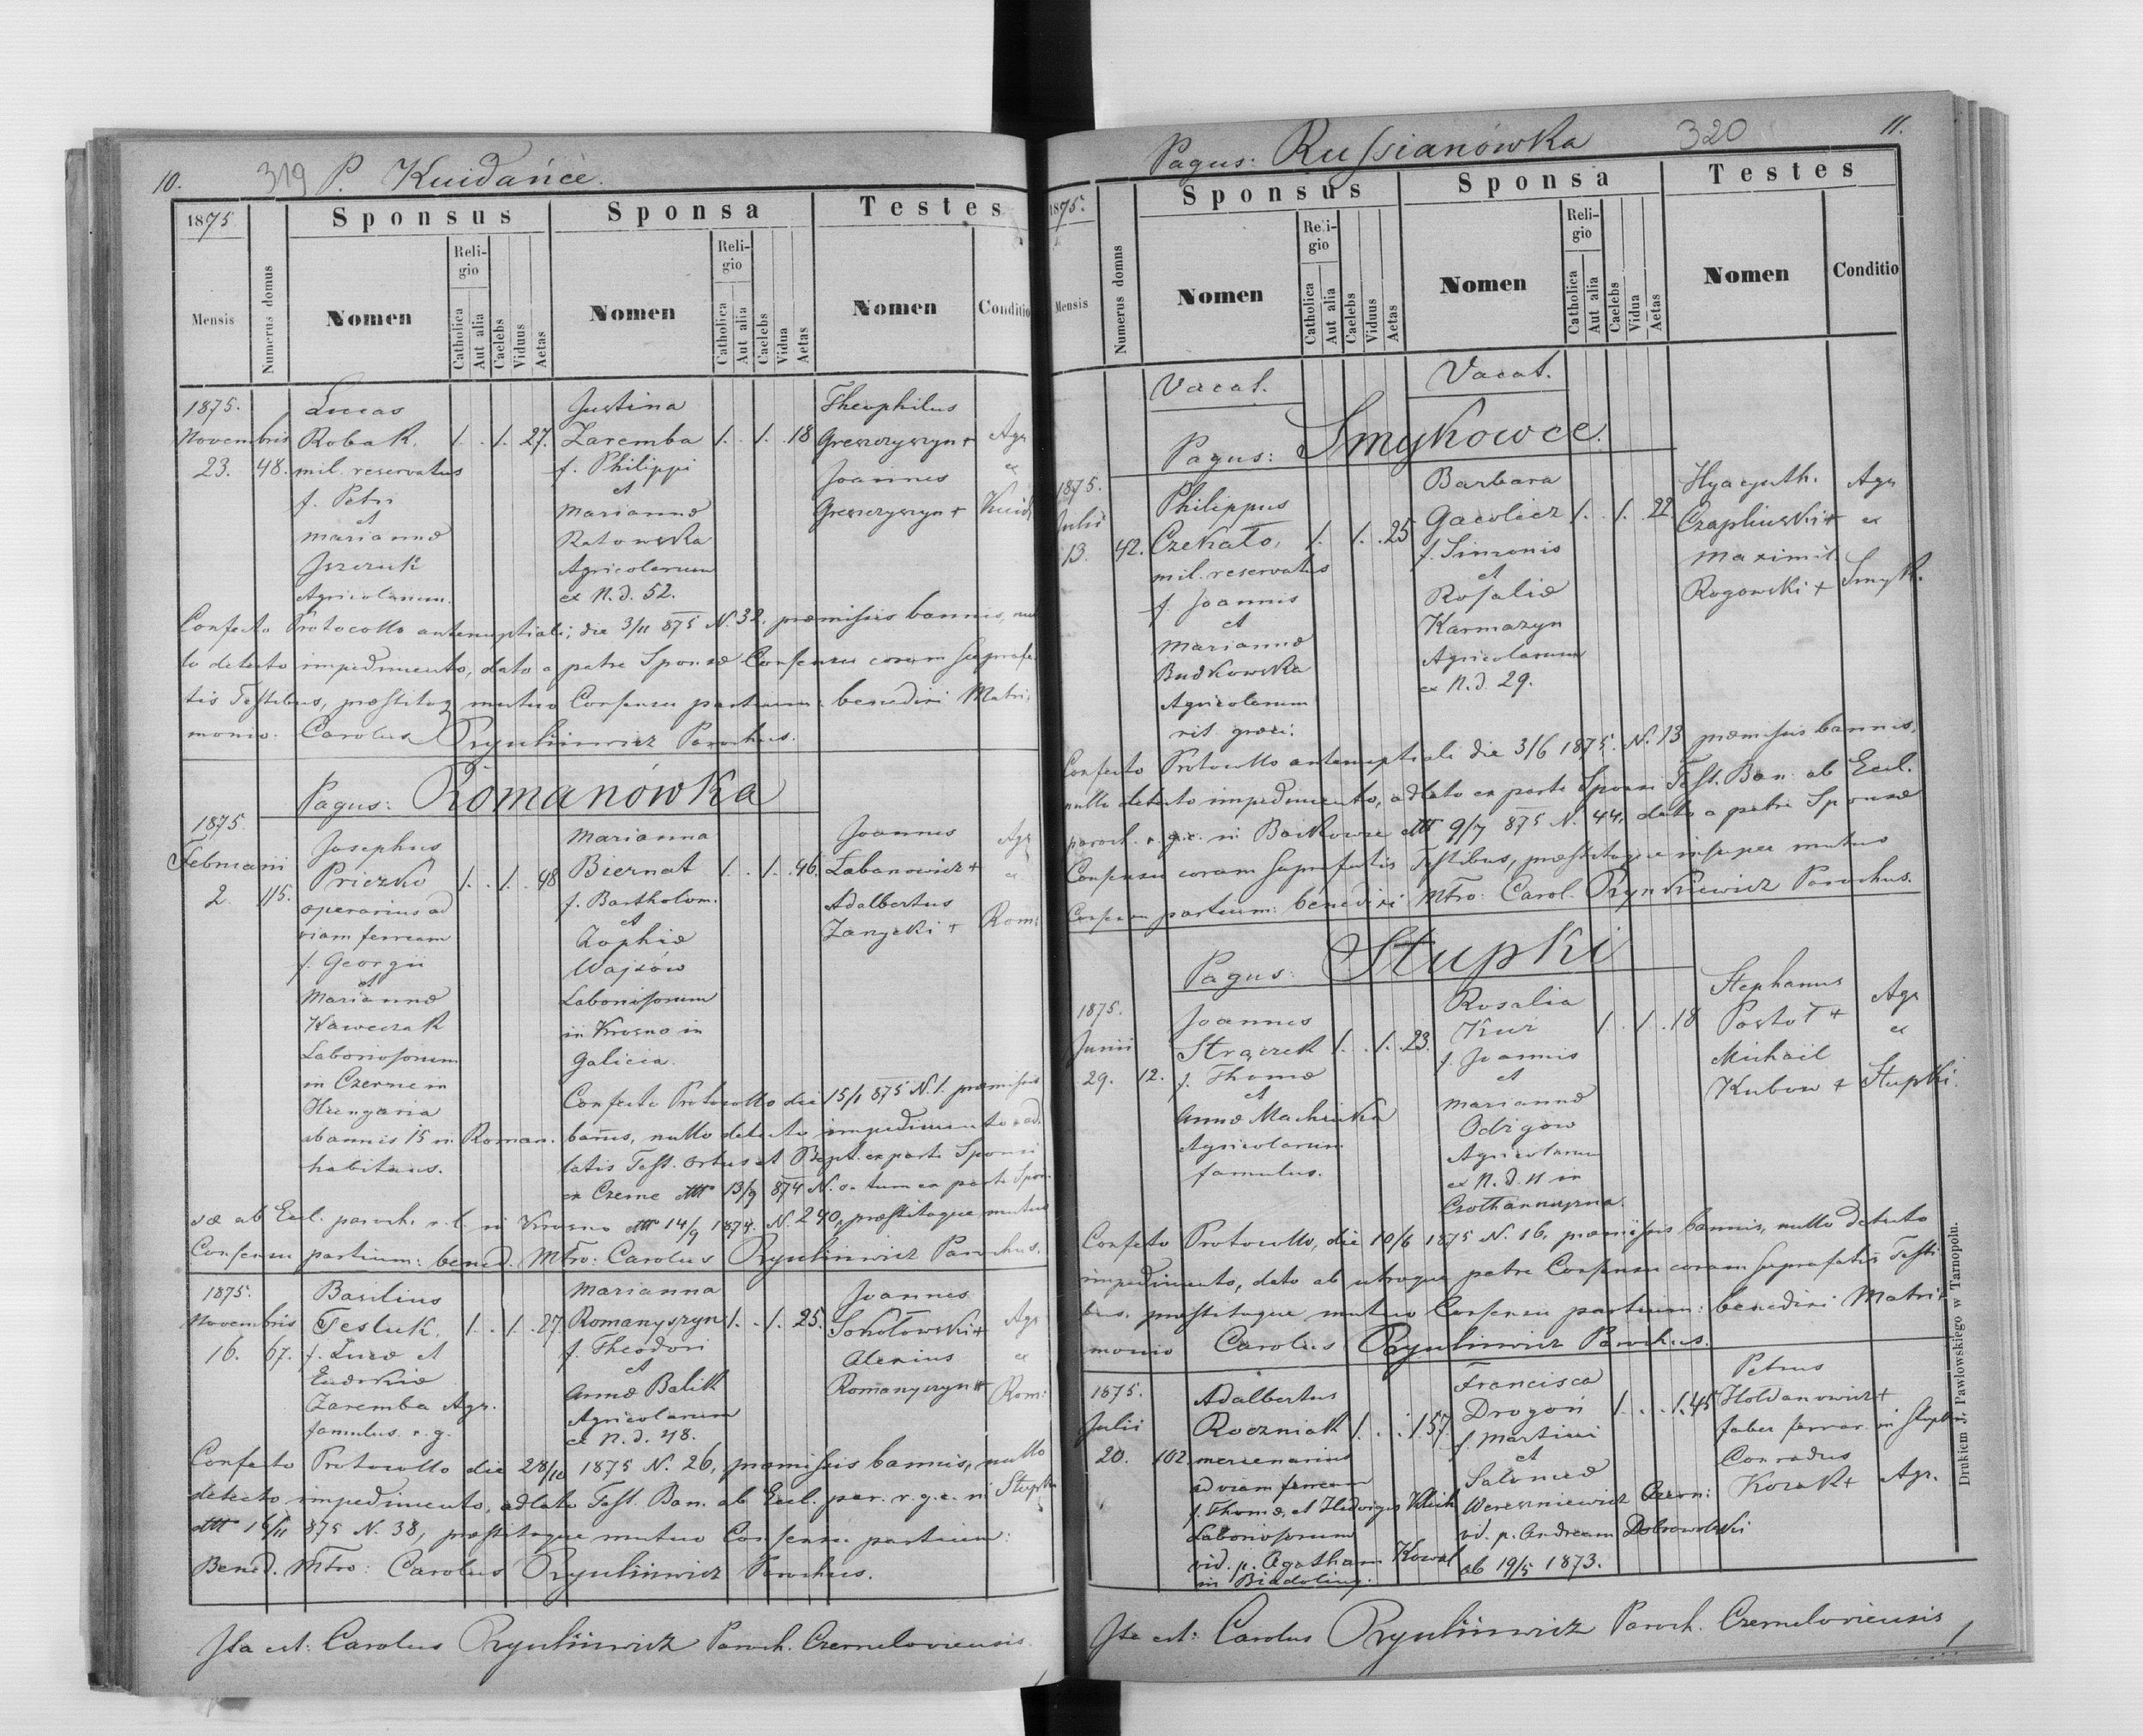 10. 319 P. Kuidańce.
1875.
Mensis
Numerus domus
Sponsus
Nomen
Religio
Catholica
Aut alia
Caelebs
Viduus
Aetas
Sponsa
Nomen
Religio
Catholica
Aut alia
Caelebs
Vidua
Aetas
Testes
Nomen
Conditio
1875.
Novembris
23. 48.
Lucas
Robak, 1. . 1. 27.
mil. reservatus
f. Petri
et
Mariannæ
Agricolarum.
Justina
Zaremba 1. . 1. 18
f. Philippi
et
Mariannæ
Ratowska
Agricolarum
ex N.d. 52.
Theophilus
Greszczyszyn +
Joannes
Greszczyszyn +
Agr
ex
Kuid
Confecto Protocollo antenuptiali, die 3/11 875 N. 32, præmissis bannis, nul
lo detecto impedimento, dato a patre Sponsæ Consensu coram suprafa
tis Testibus, præstitoq mutuo Consensu partium: benedixi Matri
monio. Carolus Parochus.
Pagus: Romanówka
1875.
Februarii
2. 115.
Josephus
Priczko 1. . 1. .48
operarius ad
viam ferream
f. Georgii
et
Mariannæ
Kaweczak
Laboriosorum
in Czerne in
Hungaria
ab annis 15 in Roman.
habitans.
Marianna
Biernat 1. . 1. .46.
f. Bartholom.
et
Zophiæ
Wajsów
Laboriosorum
in Krosno in
Galicia.
Joannes
Labanowicz +
Adalbertus
Zarycki +
Agr
ex
Rom:
Confecto Protocollo die 15/1 875 N. 1. præmissis
bannis, nullo detecto impedimento, ad
latis Test. Ortus et Bapt. ex parte Sponsi
ex Czerne dtto 13/9 874 N. o. tum ex parte Spon
sæ ab Eccl. paroch. r. l. in Krosno dtto 14/9 1874. N. 240, præstitoque mutuo
Consensu partium: bened. Mtro: Carolus Parochus.
1875.
Novembris
16. 67.
Basilius
Tesluk, 1. . 1. .27.
f. Lucæ et
Eudokiæ
Zaremba Agr.
famulus r. g.
Marianna
Romanyszyn 1. . 1. 25.
f. Theodori
et
Annæ Balik
Agricolarum
ex N.d. 48.
Joannes
Sokołowski +
Alexius
Romanyszyn +
Agr
ex
Rom:
Confecto Protocollo die 28/10 1875 N. 26, præmissis bannis, nullo
detecto impedimento, adlato Test. Ban. ab Eccl. par. r. g. c. in Stupki
dtto 16/11 875 N. 38, præstitoque mutuo Consensu partium:
Bened. Mtro: Carolus Parochus.
Ita est: Carolus Paroch. Czerneloviensis.
Pagus: Russianówka 320 11.
1875.
Mensis
Numerus domus
Sponsus
Nomen
Religio
Catholica
Aut alia
Caelebs
Viduus
Aetas
Sponsa
Nomen
Religio
Catholica
Aut alia
Caelebs
Vidua
Aetas
Testes
Nomen
Conditio
Vacat. Vacat.
Pagus: Smykowce.
1875.
Julii
13. 42.
Philippus
Czekało, 1. 1. .25
mil. reservatus
f. Joannis
et
Mariannæ
Budkowska
Agricolarum
rit. græci.
Barbara
Gacolicz 1. . 1. .22.
f. Simonis
et
Rosaliæ
Karmazyn
Agricolarum
ex N.d. 29.
Hyacynth.
Czapliński +
Maximil.
Rogowski +
Agr
ex
Smyk.
Confecto Protocollo antenuptiali die 3/6 1875. N. 13 præmissis bannis,
nullo detecto impedimento, adlato ex parte Sponsi Test. Ban. ab Eccl.
paroch. r. g. c. in dtto 9/7 875 N. 44, dato a patre Sponsæ
Consensu coram suprafatis Testibus, præstitoque insuper mutuo
Consensu partium: benedixi Mtro: Carol. Parochus.
Pagus: Stupki
1875.
Junii
29. 12.
Joannes
Strączek 1. . 1. .23.
f. Thomæ
et
Annæ
Agricolarum
famulus.
Rosalia
1. . 1. .18
f. Joannis
et
Mariannæ
Agricolarum
ex N.d. 11 in
Stephanus
Michaël
Kubow +
Agr
ex
Stupki.
Confecto Protocollo, die 10/6 1875 N. 16, præmissis bannis, nullo detecto
impedimento, dato ab utroque patre Consensu coram suprafatis Testi
bus, præstitoque mutuo Consensu partium: benedixi Matri
monio Carolus Parochus.
1875.
Julii
20. 102.
Adalbertus
Roczniak 1. . . 1. 57.
mercenarius
ad viam ferream
f. Thomæ, et Hedvigis Klich
Laboriosorum
vid. p. Agatham Kowal
in
Francisca
Drogoń 1. . . 1. 45
f. Martini
et
Salomeæ
Wereszniewicz
vid. p. Andream Dobrowolski
ab 19/5 1873.
Petrus
Hołdanowicz +
faber ferrar. in Stupki
Conradus
Kozak +
Agr.
Ita est: Carolus Paroch. Czerneloviensis
Drukiem J. Pawłowskiego w Tarnopolu.